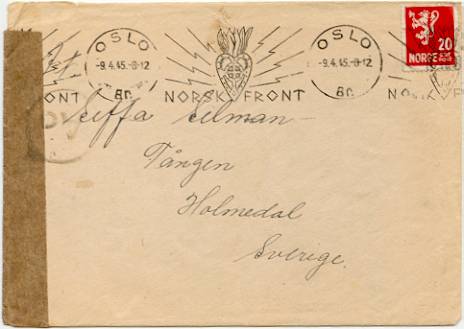 OSLO
-9.4.45.-8-12
Br.
NORSK FRONT
OSLO
-9.4.45.-8-12
Br.
NORSK FRONT
20
NORGE
ONT
Tången
Holmedal
Sverige.